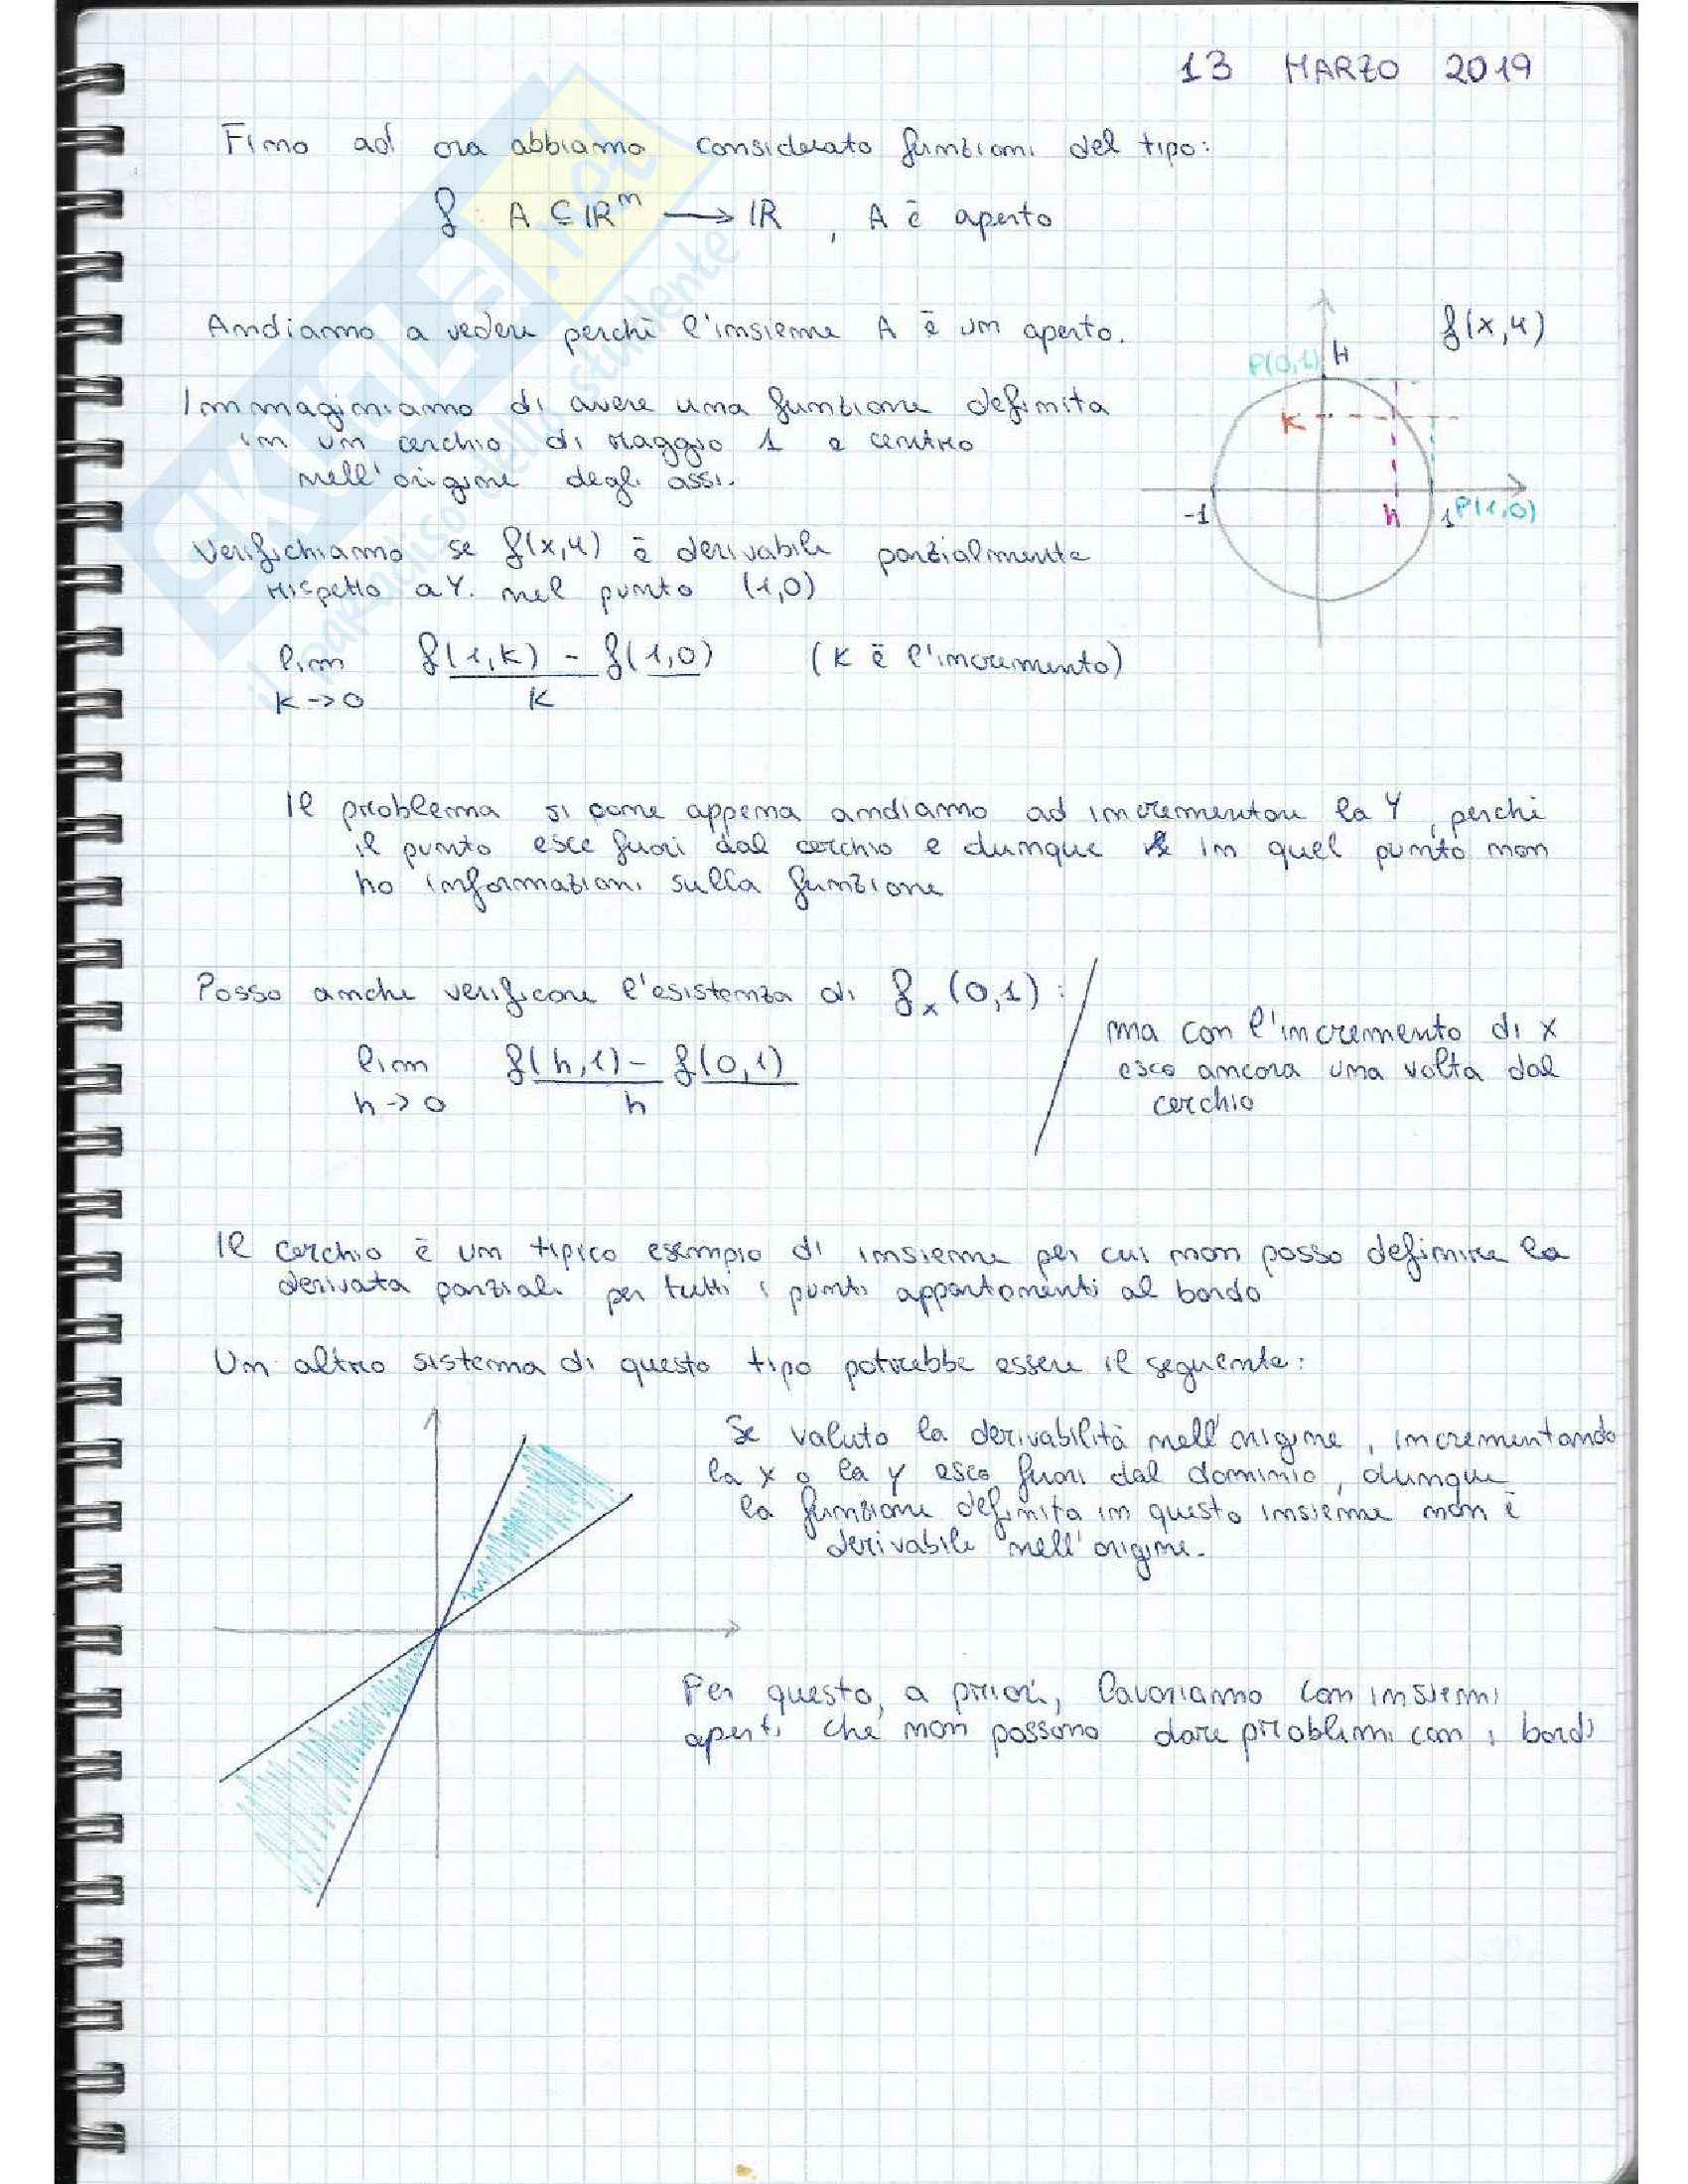 13 MARZO 2019
Fino ad ora abbiamo considerato funzioni del tipo:
f: A ⊆ ℝⁿ → ℝ , A è aperto
Andiamo a vedere perchè l'insieme A è un aperto.
f(x,y)
P(0,1) H
K
-1 h 1 P(1,0)
Immaginiamo di avere una funzione definita
in un cerchio di raggio 1 e centro
nell'origine degli assi.
Verifichiamo se f(x,y) è derivabile parzialmente
rispetto a Y. nel punto (1,0)
lim f(1,k) - f(1,0) (K è l'incremento)
k→0 k
Il problema si pone appena andiamo ad incrementare la Y, perchè
il punto esce fuori dal cerchio e dunque in quel punto non
ho informazioni sulla funzione
Posso anche verificare l'esistenza di fₓ(0,1):
lim f(h,1) - f(0,1)
h→0 h
ma con l'incremento di x
esco ancora una volta dal
cerchio
Il cerchio è un tipico esempio di insieme per cui non posso definire la
derivata parziale per tutti i punti appartenenti al bordo
Un altro sistema di questo tipo potrebbe essere il seguente:
Se valuto la derivabilità nell'origine, incrementando
la x o la y esco fuori dal dominio, dunque
la funzione definita in questo insieme non è
derivabile nell'origine.
Per questo, a priori, lavoriamo con insiemi
aperti che non possono dare problemi con i bordi
SKUOLA.net
il paradiso dello studente